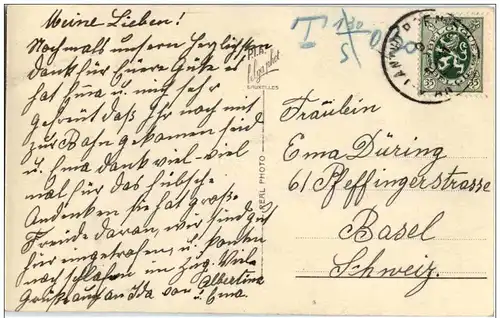 Meine Lieben!
Nochmals unsern herzlichsten
Dank für Euere Güte es
hat Emma u. mich sehr
gefreut daß Ihr noch mit
zur Bahn gekommen seid
u. Ema dankt viel-viel
mal für das hübsche
Andenken sie hat große
Freude daran, wir sind gut
hier u. konnten
noch schlafen im Zug. Viele
Grüße auch an Ida von Albertine
u. Ema.
T 180
5
PIAZ
Belgaphot
BRUXELLES
REAL PHOTO
ANTWERPEN
35 35
Fräulein
Ema Düring
61 Pfeffingerstrasse
Basel
Schweiz.